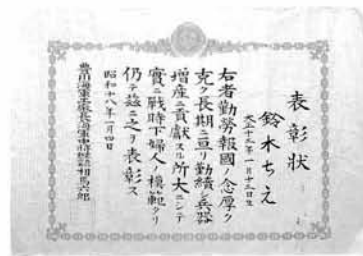 表彰状
鈴木ちえ
大正十三年一月十三日生
右者勤労報國ノ念厚ク
克ク長期ニ亘リ勤績シ兵器
増産ニ貢献スル所大ニシテ
實ニ戦時下婦人ノ模範タリ
仍テ茲ニ之ヲ表彰ス
昭和十八年一月四日
豊川海軍工廠長海軍中将従四位相馬六郎